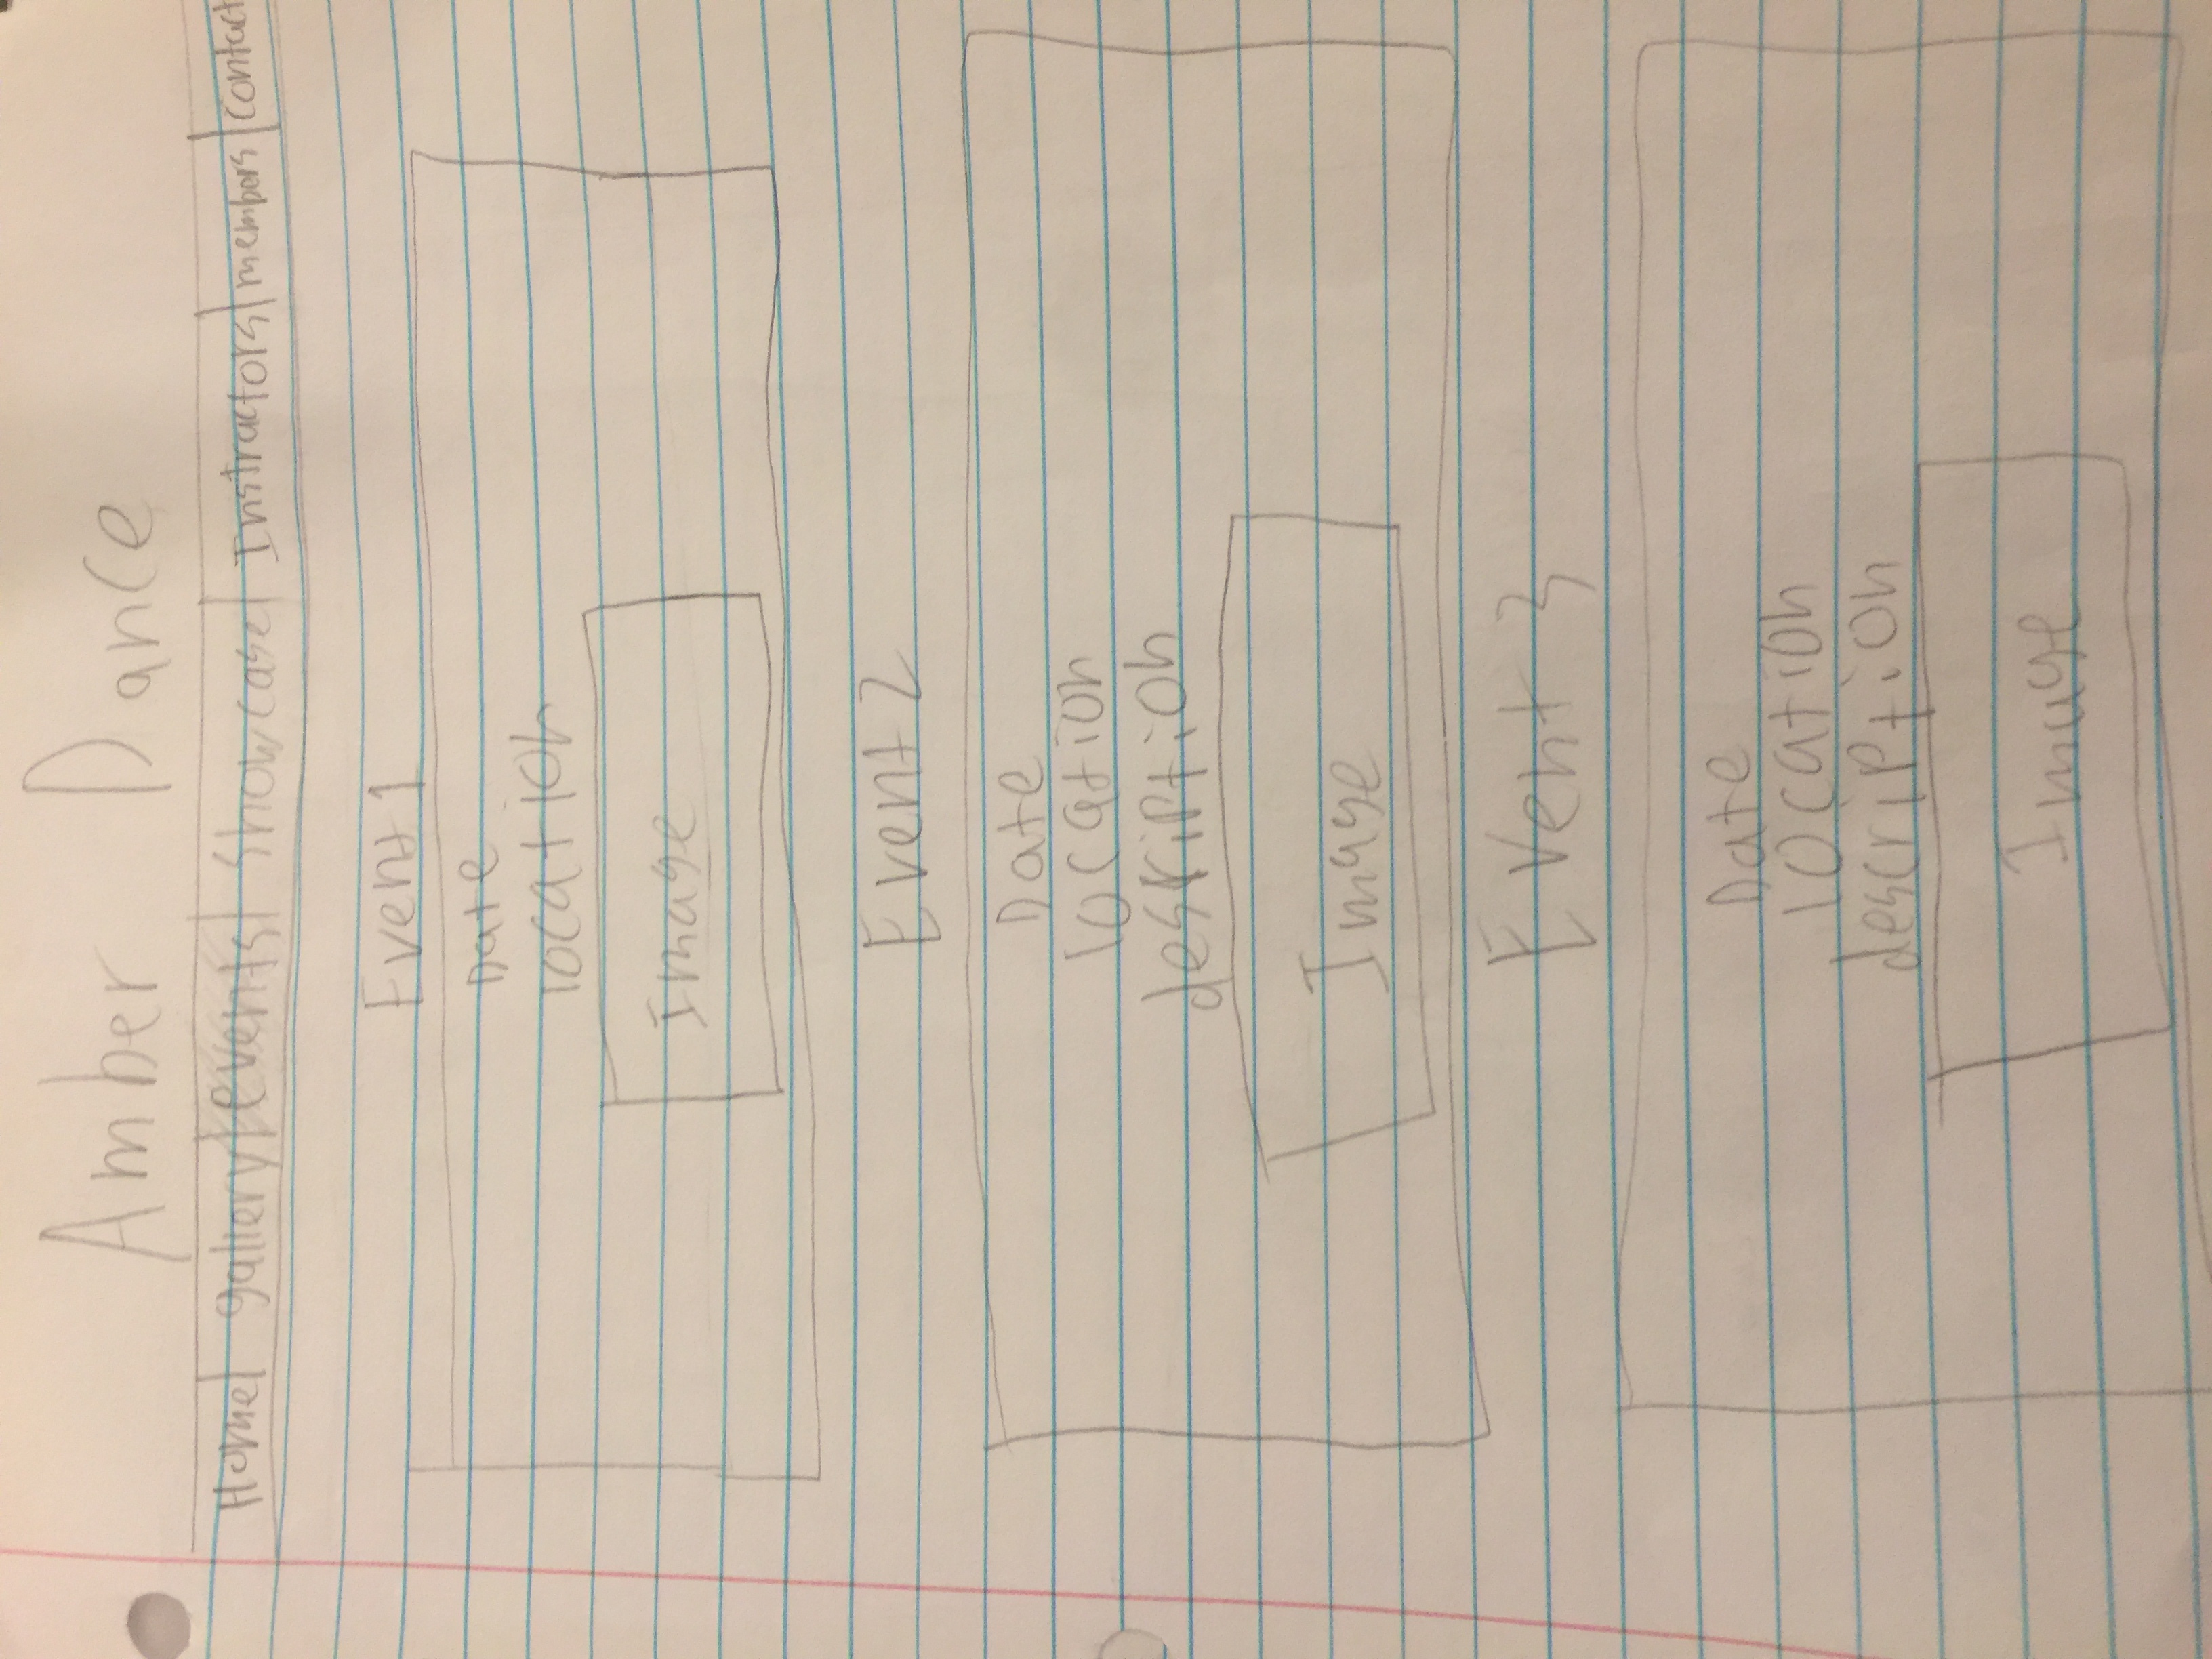 Amber Dance
Home gallery events Showcase Instractors members contact
Event 1
Date
location
Image
Event 2
Date
location
deskription
Image
Event 3
Date
location
description
Image